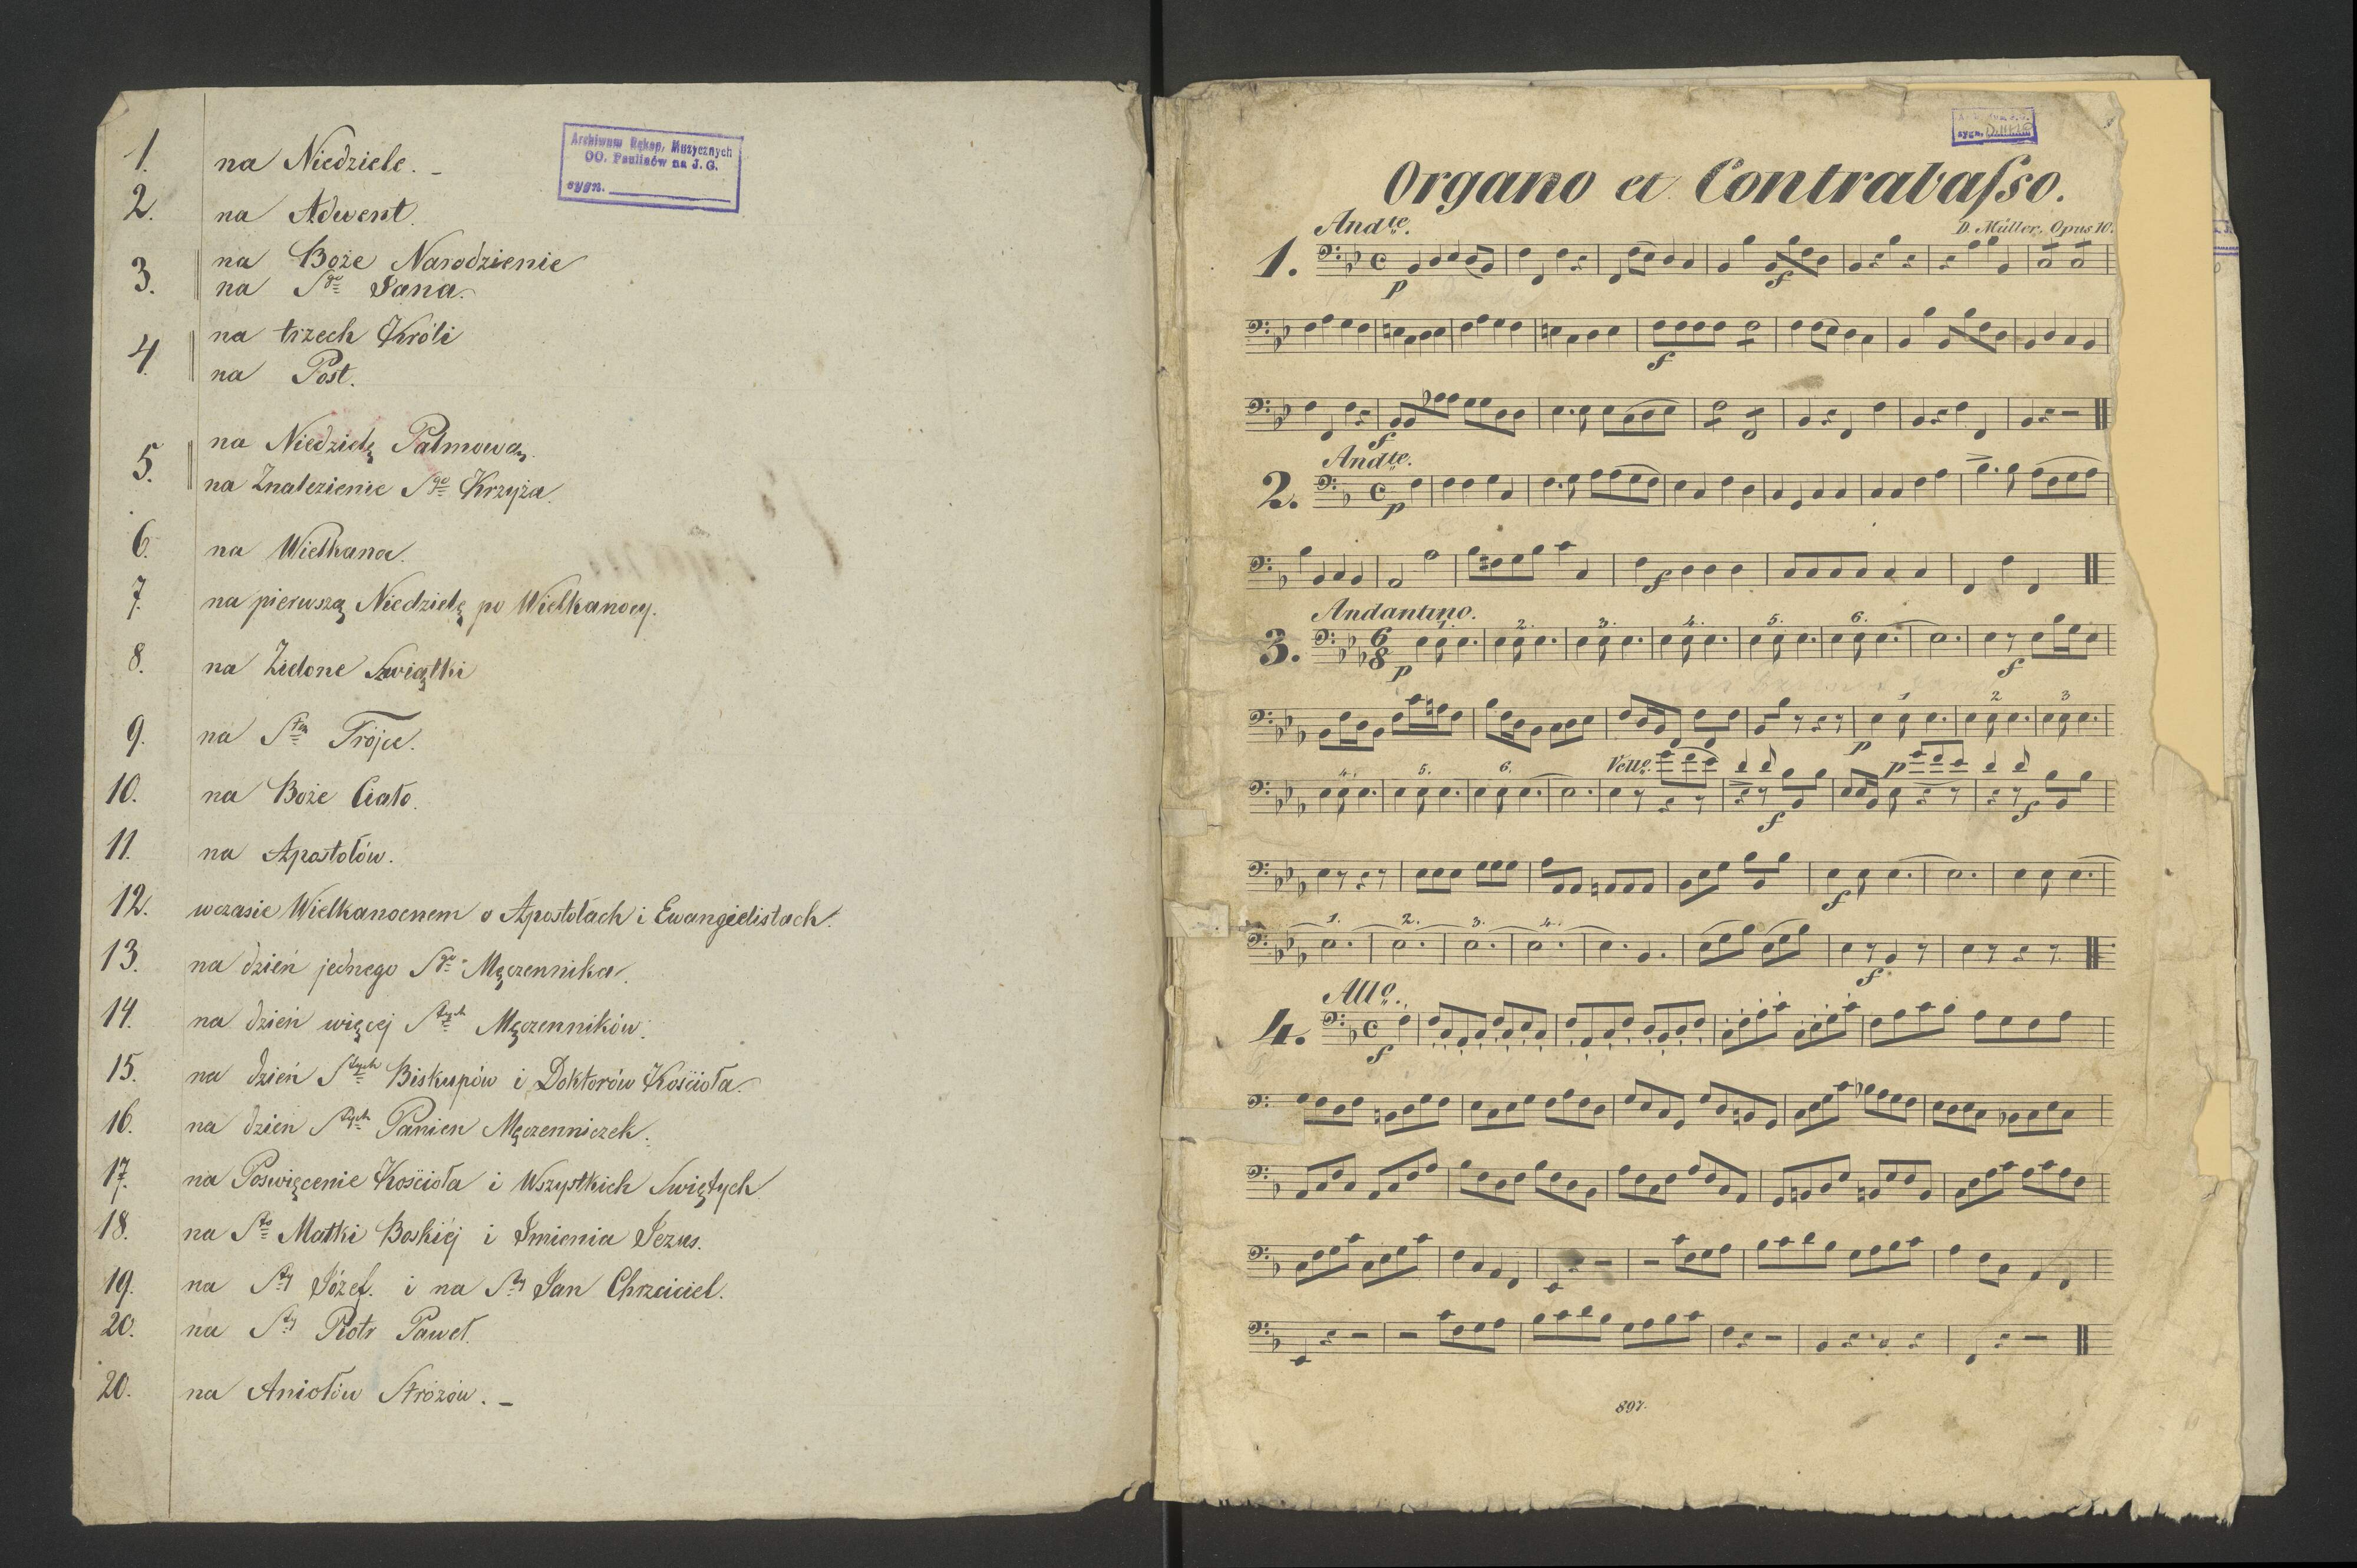 1. na Niedziele. _
2. na Adwent.
3. na Boże Narodzienie
na Sgo Jana.
4. na trzech Króli
na Post.
5. na Niedzielę Palmową.
na Znalezienie Sgo Krzyża.
6. na Wielkanoc.
7. na pierwszą Niedzielę po Wielkanocy.
8. na Zielone Swiątki
9. na Stą Trójce.
10. na Boże Ciało.
11. na Apostołów.
12. wczasie Wielkanocnem o Apostołach i Ewangielistach.
13. na dzień jednego Sgo Męczennika.
14. na dzień więcej Stych Męczenników.
15. na dzień Stych Biskupów i Doktorów Kościoła.
16. na dzien Stych Panien Męczenniczek.
17. na Poswięcenie Kościoła i Wszystkich Swiętych
18. na Sto Matki Boskiéj i Imienia Jezus.
19. na Sty Józef. i na Sty Jan Chrzciciel.
20. na Sty Piotr Paweł.
20. na Aniołów Stróżów. _
Archiwum Rękop. Muzycznych
OO. Paulinów na J. G.
sygn.
sygn.
Organo et Contrabaſso.
Andte.
D. Müller, Opus 10.
1.
p
f
f
f
Andte.
2.
p
f
Andantino.
3. 6 8
1. 2. 3. 4. 5. 6.
p
f
1 2 3
p
4. 5. 6. Vcllo. p
f
f
f
1. 2. 3. 4.
f
Allo.
4.
f
897.